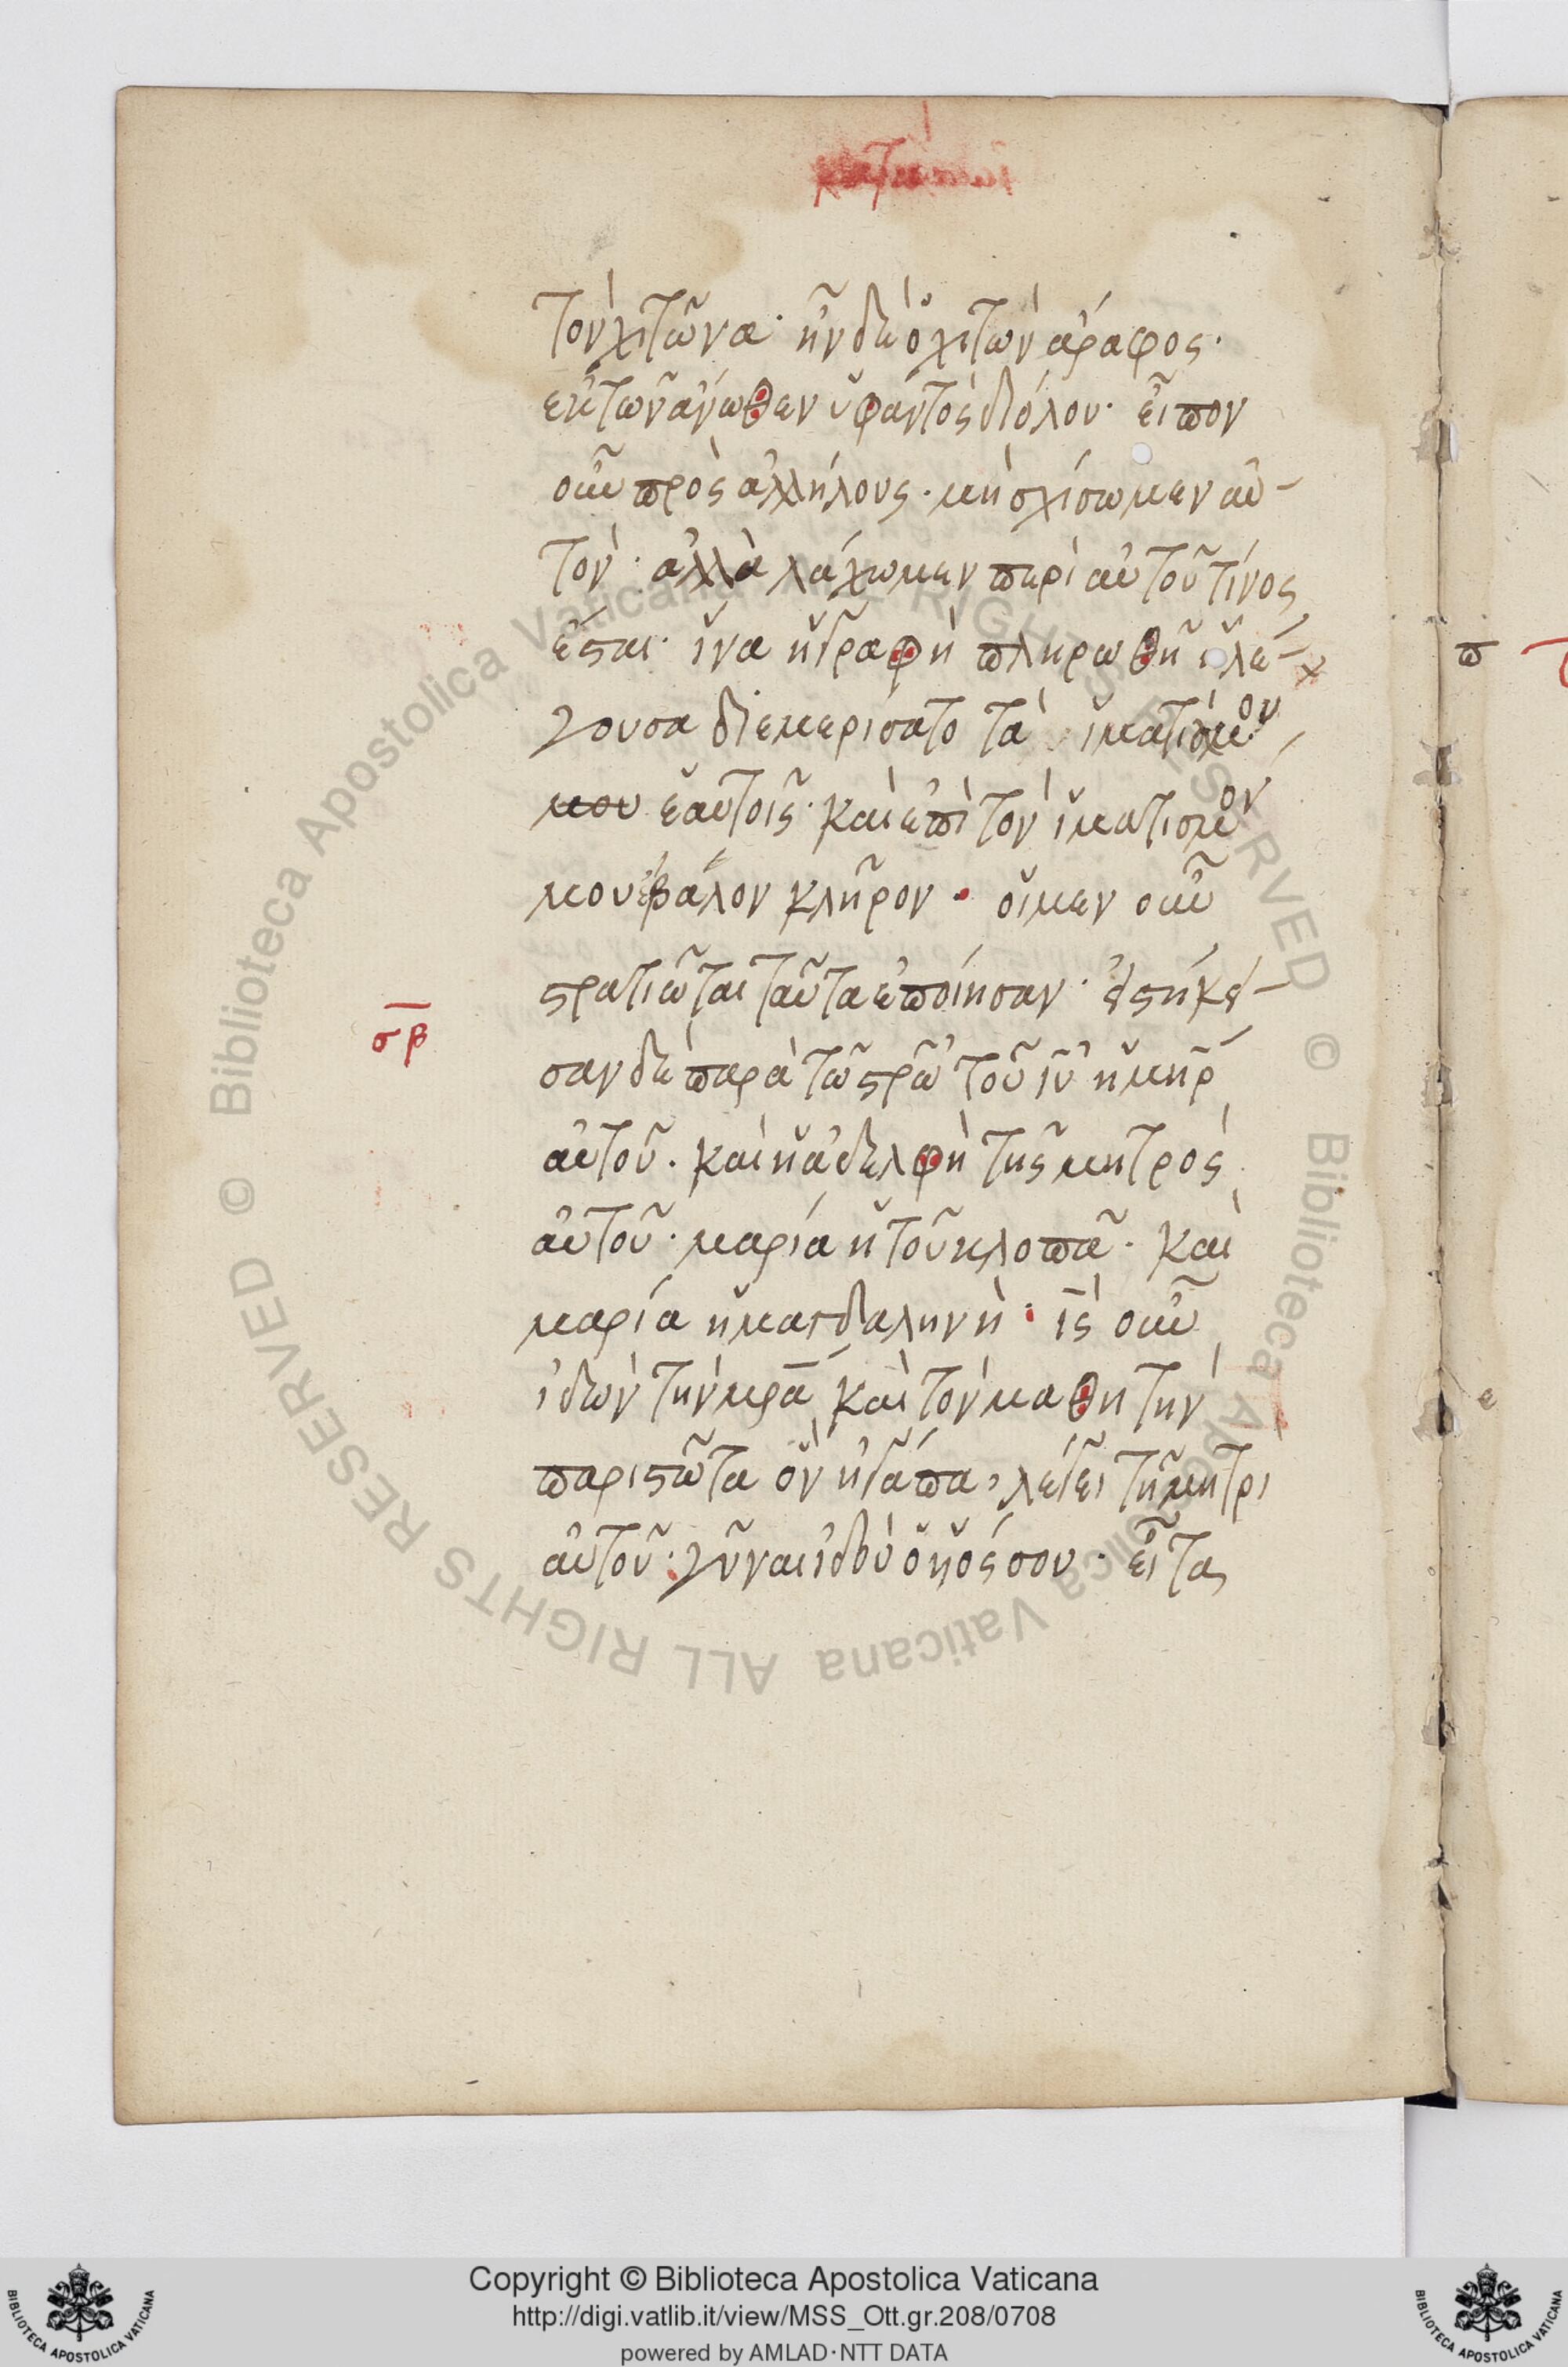 τὸν χιτῶνα· ἦν δὲ ὁ χιτὼν ἄραφος·
ἐκ τῶν ἄνωθεν ὑφαντὸς διόλου· εἶπον
οὖν πρὸς ἀλλήλους· μὴ σχίσωμεν αὐ-
τόν· ἀλλὰ λάχωμεν περὶ αὐτοῦ τίνος
ἔσται· ἵνα ἡ γραφὴ πληρωθῆ ἡ λέ-
γουσα διεμερίσατο τὰ ἱματισμον
μου ἑαυτοῖς· καὶ ἐπὶ τὸν ἱματισμον
μου ἔβαλον κλῆρον· οἱ μεν οὖν
στρατιῶται ταῦτα ἐποίησαν· ἑστήκε-
σβ
σαν δὲ παρὰ τῶ στρῶ τοῦ ιυ ἡ μηρ
αὐτοῦ· καὶ ἡ ἀδελφὴ τῆς μητρὸς
αὐτοῦ· μαρία ἡ τοῦ κλοπᾶ· καὶ
μαρία ἡ μαγδαληνή· ις οὖν
ἰδὼν τὴν μρα καὶ τὸν μαθητὴν
παρεστῶτα ὃν ἠγάπα, λέγει τῆ μητρὶ
αὐτοῦ· γύναι ἰδοὺ ὁ υἱός σου· εἶτα
Copyright © Biblioteca Apostolica Vaticana
http://digi.vatlib.it/view/MSS_Ott.gr.208/0708
powered by AMLAD·NTT DATA
BIBLIOTECA APOSTOLICA VATICANA
BIBLIOTECA APOSTOLICA VATICANA
© Biblioteca Apostolica Vaticana ALL RIGHTS RESERVED © Biblioteca Apostolica Vaticana ALL RIGHTS RESERVED